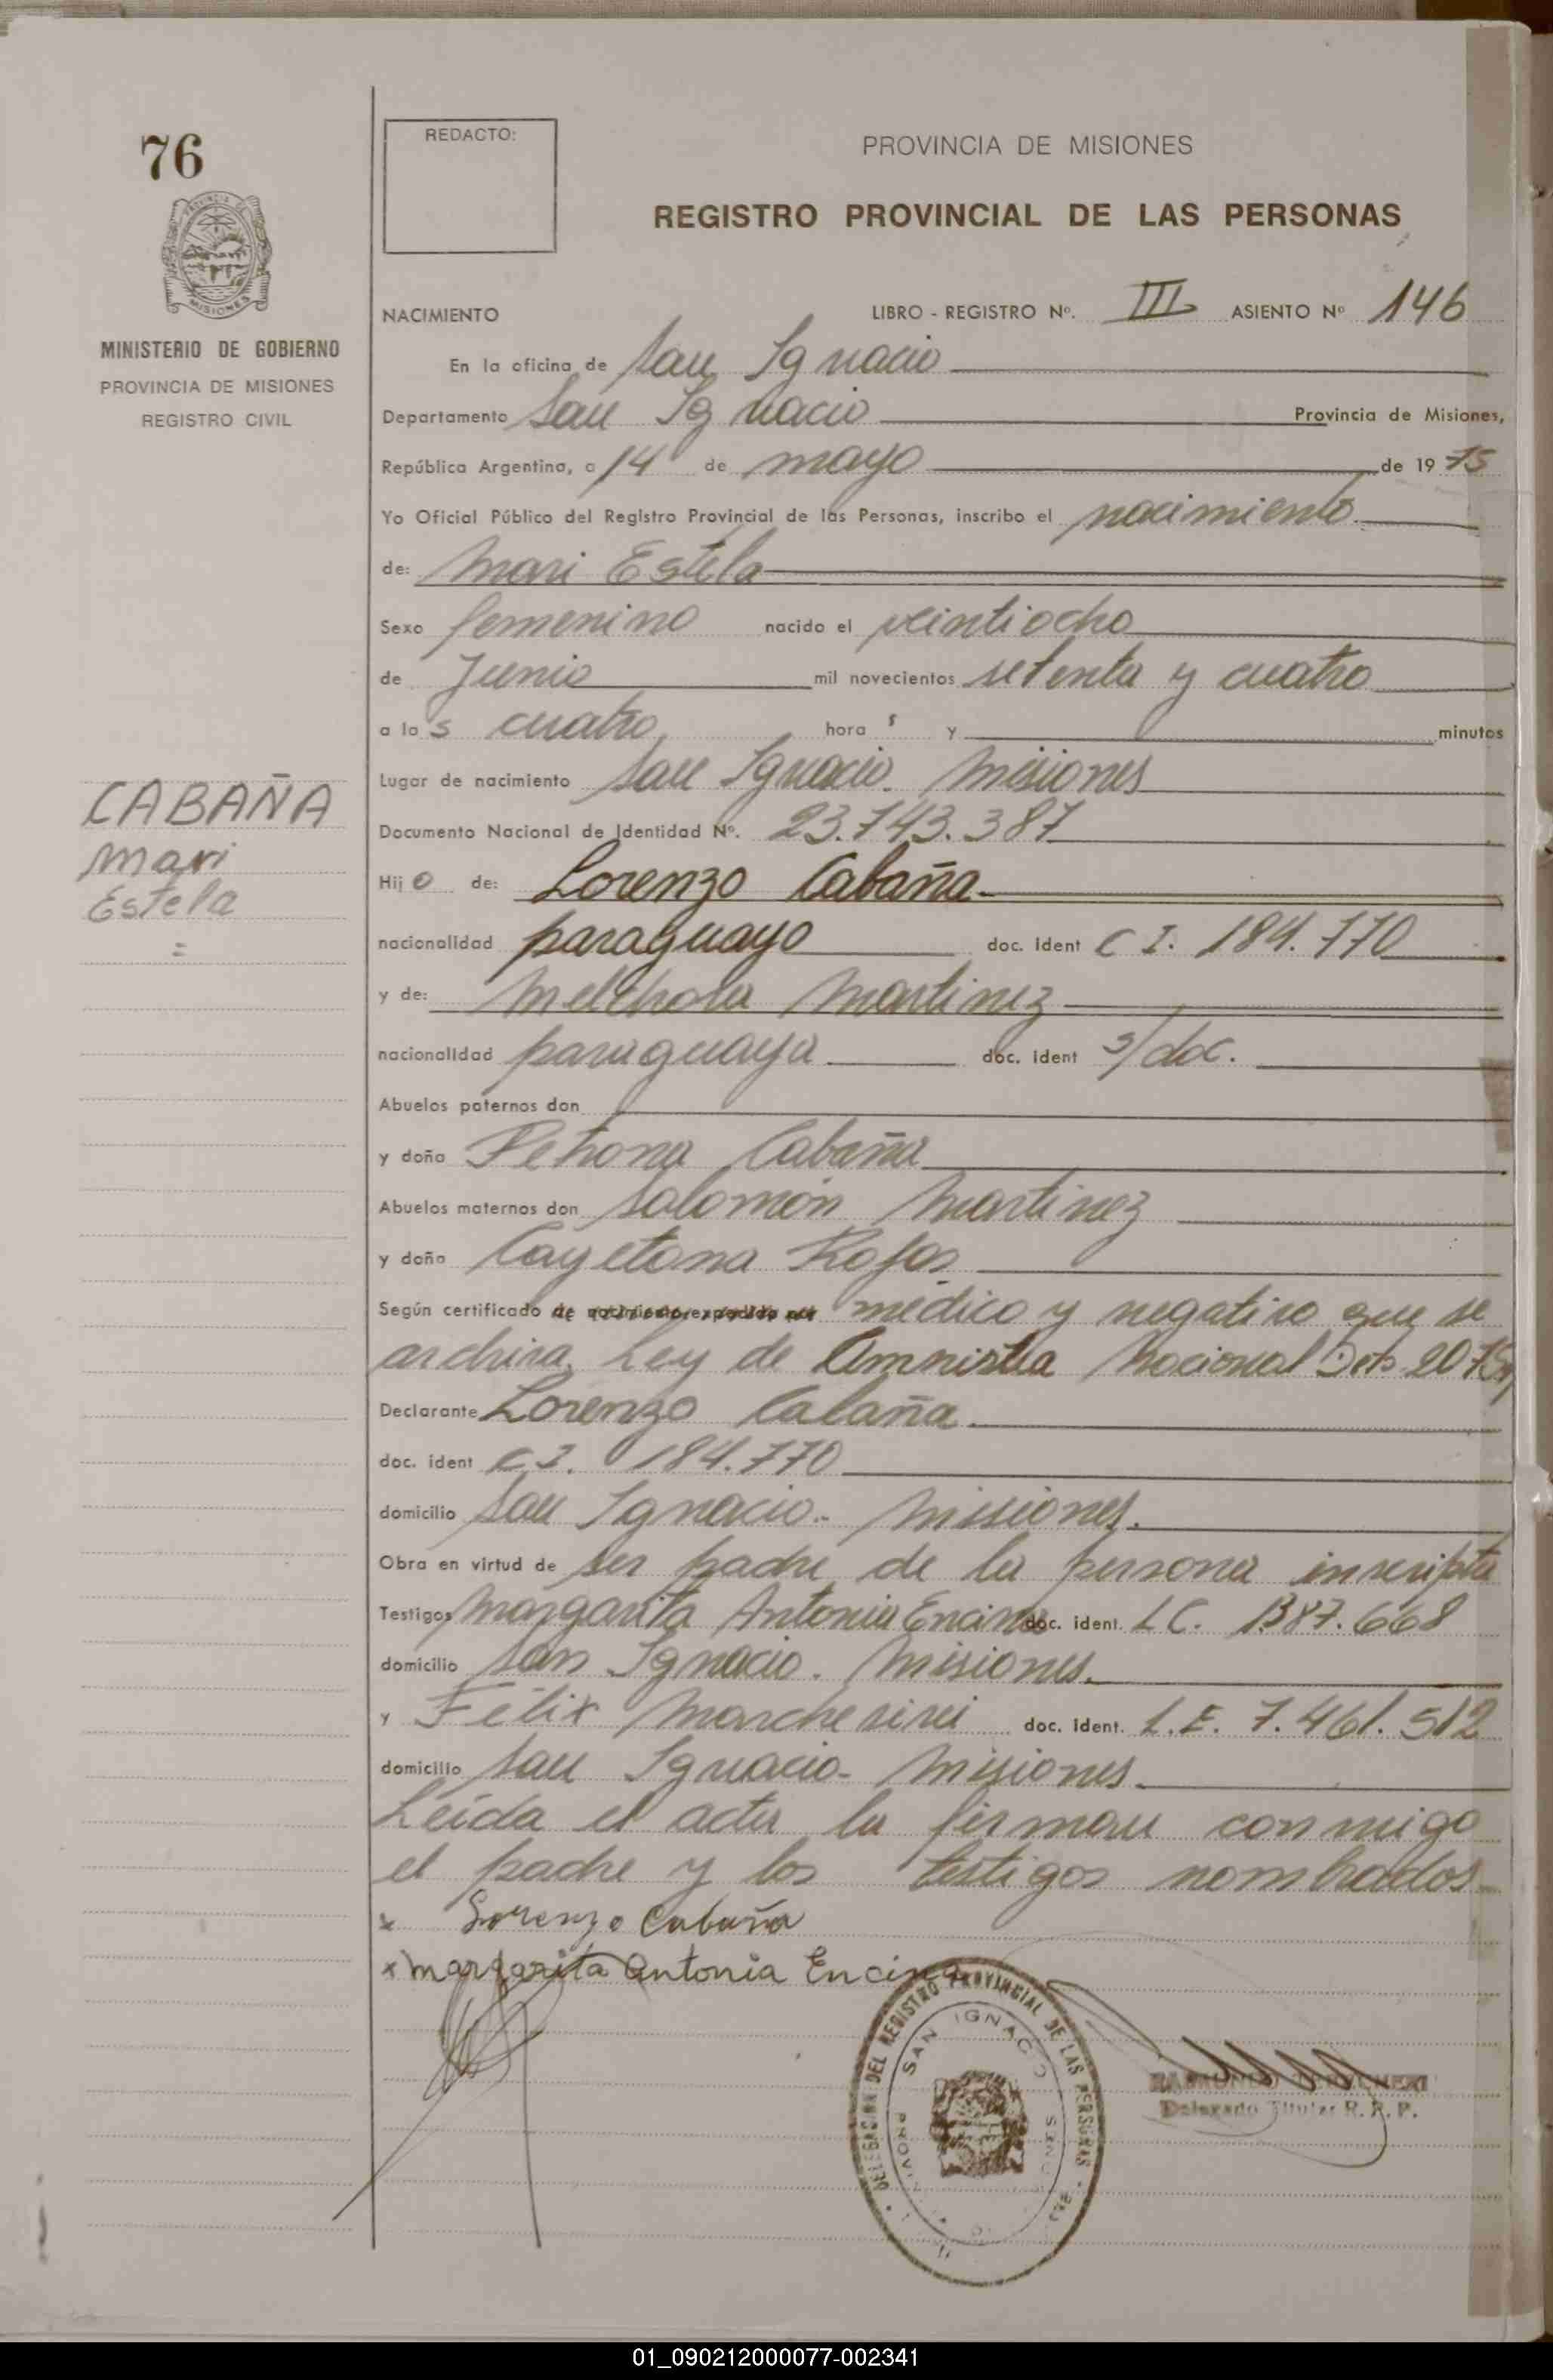 76
REDACTO:
PROVINCIA DE MISIONES
REGISTRO PROVINCIAL DE LAS PERSONAS
MINISTERIO DE GOBIERNO
PROVINCIA DE MISIONES
REGISTRO CIVIL
NACIMIENTO LIBRO - REGISTRO Nº. III ASIENTO Nº 146
En la oficina de San Ignacio
Departamento San Ignacio Provincia de Misiones,
República Argentina, a 14 de mayo de 1975
Yo Oficial Público del Registro Provincial de las Personas, inscribo el nacimiento
de: Mari Estela
Sexo femenino nacido el veintiocho
de Junio mil novecientos setenta y cuatro
a las cuatro horas y minutos
Lugar de nacimiento San Ignacio. Misiones
CABAÑA
Mari
Estela
=
Documento Nacional de Identidad Nº. 23.743.387
Hijo de: Lorenzo Cabaña
nacionalidad paraguayo doc. Ident C I. 184.770
y de: Melchora Martinez
nacionalidad paraguaya doc. Ident s/doc.
Abuelos paternos don
y doña Petrona Cabaña
Abuelos maternos don Salomón Martinez
y doña Cayetana Rojas
Según certificado de nacimiento expedido por medico y negativo que se
archiva. Ley de Amnistia Nacional Dto
Declarante Lorenzo Cabaña
doc. ident C.I. 184.770
domicilio San Ignacio.- Misiones.
Obra en virtud de ser padre de la persona inscripta
Testigos Margarita Antonia Encina doc. ident. LC. 1387.668
domicilio San Ignacio. Misiones.
y Félix Marchesini doc. Ident. L.E. 7.461.512
domicilio San Ignacio- Misiones.
Leida el acta la firman conmigo
el padre y los testigos nombrados
x Lorenzo Cabaña
x Margarita Antonia Encina
DELEGACION DEL REGISTRO PROVINCIAL DE LAS PERSONAS
SAN IGNACIO
Delegado Titular R. P. P.
01_090212000077-002341